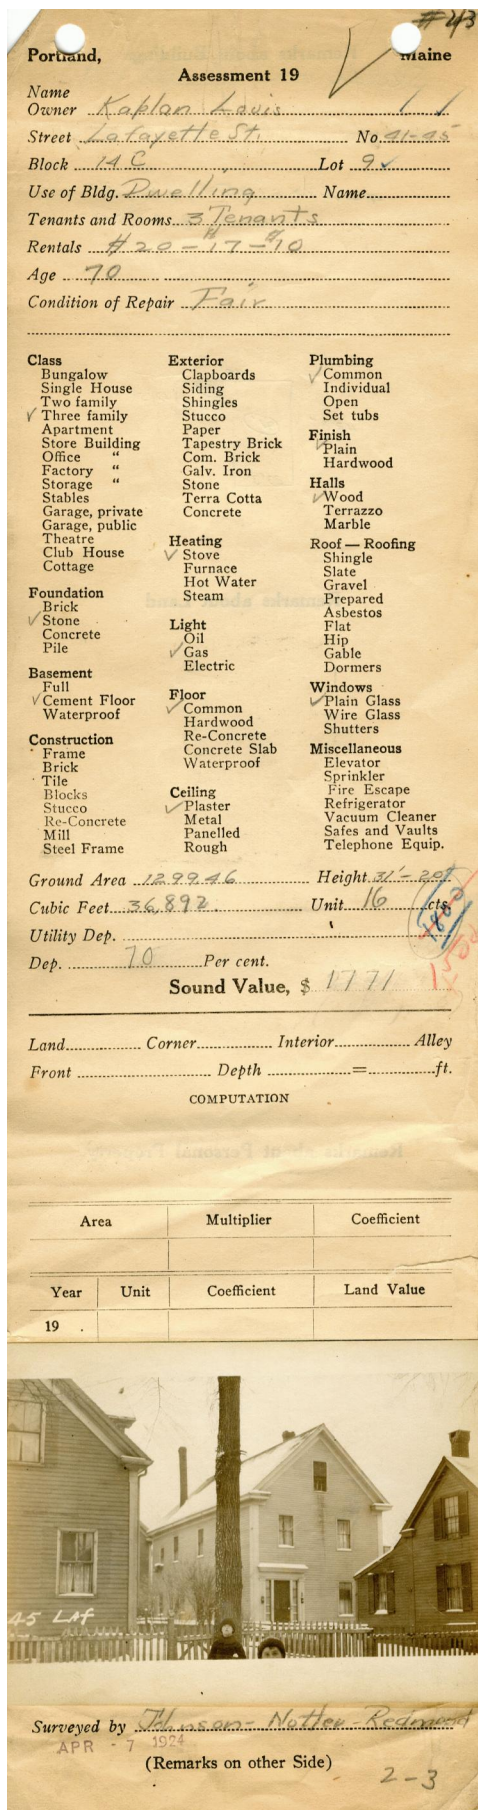 #43
Portland, Maine
Assessment 19
Name
Owner Kaplan Louis
Street Lafayette St. No. 41-45
Block 14 C Lot 9 ✓
Use of Bldg. Dwelling Name
Tenants and Rooms 3 Tenants
Rentals #20-17-10
Age 70
Condition of Repair Fair
Class
Bungalow
Single House
Two family
✓ Three family
Apartment
Store Building
Office "
Factory "
Storage "
Stables
Garage, private
Garage, public
Theatre
Club House
Cottage
Foundation
Brick
✓ Stone
Concrete
Pile
Basement
Full
✓ Cement Floor
Waterproof
Construction
Frame
Brick
Tile
Blocks
Stucco
Re-Concrete
Mill
Steel Frame
Exterior
Clapboards
Siding
Shingles
Stucco
Paper
Tapestry Brick
Com. Brick
Galv. Iron
Stone
Terra Cotta
Concrete
Heating
✓ Stove
Furnace
Hot Water
Steam
Light
Oil
✓ Gas
Electric
Floor
✓ Common
Hardwood
Re-Concrete
Concrete Slab
Waterproof
Ceiling
✓ Plaster
Metal
Panelled
Rough
Plumbing
✓ Common
Individual
Open
Set tubs
Finish
✓ Plain
Hardwood
Halls
✓ Wood
Terrazzo
Marble
Roof — Roofing
Shingle
Slate
Gravel
Prepared
Asbestos
Flat
Hip
Gable
Dormers
Windows
✓ Plain Glass
Wire Glass
Shutters
Miscellaneous
Elevator
Sprinkler
Fire Escape
Refrigerator
Vacuum Cleaner
Safes and Vaults
Telephone Equip.
Ground Area 129946 Height 31'-20'
Cubic Feet 36,892. Unit 16 cts.
1800
Utility Dep.
Dep. 70 Per cent.
Sound Value, $ 1771
Land Corner Interior Alley
Front Depth = ft.
COMPUTATION
Area Multiplier Coefficient
Year Unit Coefficient Land Value
19 .
45 LAF
Surveyed by Johnson-Notter-Redmond
APR - 7 1924
(Remarks on other Side)
2-3